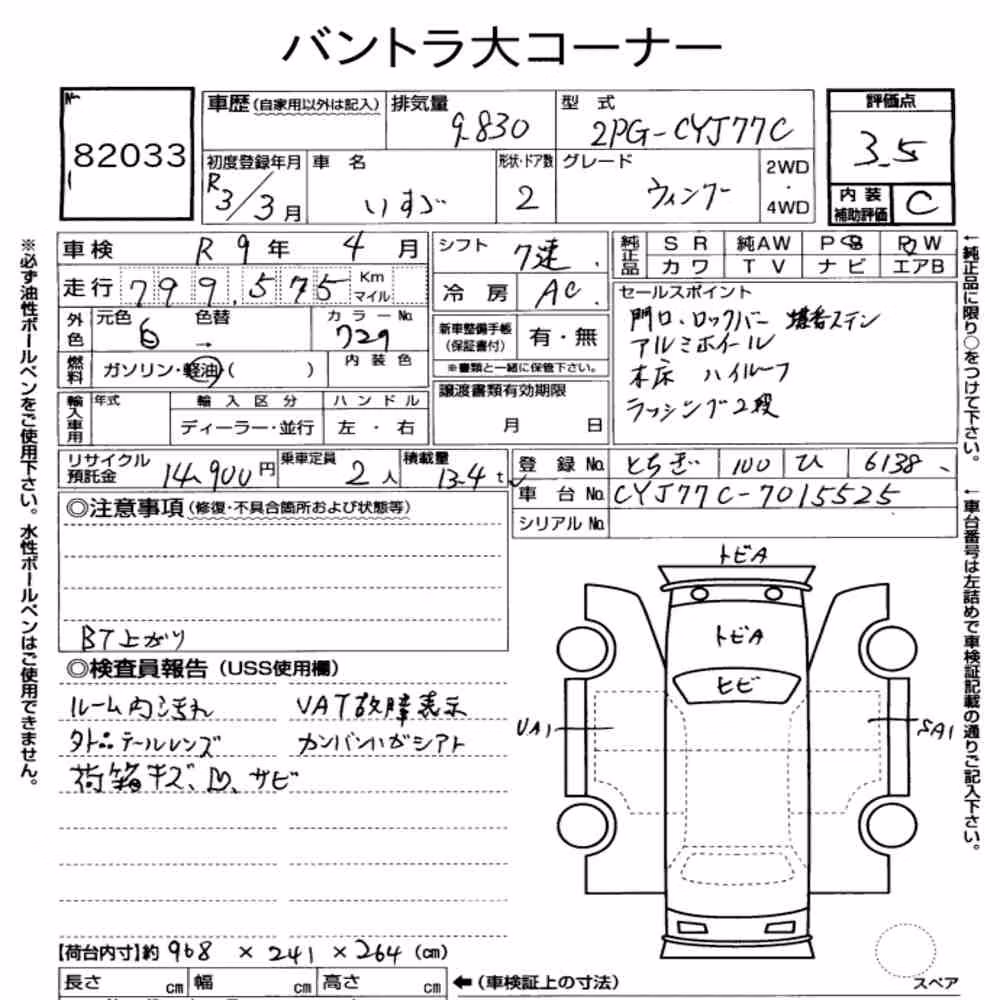 バントラ大コーナー
№ 82033
車歴(自家用以外は記入) 排気量 9.830 型式 2PG-CYJ77C 評価点 3.5
初度登録年月 R3/3月 車名 いすゞ 形状・ドア数 2 グレード ウィング 2WD・4WD 内装補助評価 C
車検 R9年4月 シフト 7速 純正品 SR 純AW PS PW
走行 799,575 Km マイル 冷房 AC カワ TV ナビ エアB
外色 元色 白 色替 → カラーNo. 729 新車整備手帳(保証書付) 有・無
セールスポイント
門口、ロックバー 堪番ステン
アルミホイール
木床 ハイルーフ
ラッシング2段
燃料 ガソリン・軽油( ) 内装色 ※書類と一緒に保管下さい。
輸入車用 年式 輸入区分 ディーラー・並行 ハンドル 左・右 譲渡書類有効期限 月 日
リサイクル預託金 14,900円 乗車定員 2人 積載量 13.4t
登録No. とちぎ 100 ひ 6138
車台No. CYJ77C-7015525
シリアルNo.
◎注意事項(修復・不具合箇所および状態等)
BT上がり
◎検査員報告(USS使用欄)
ルーム内汚れ VAT故障表示
外品テールレンズ カンバンハガシアト
荷箱キズ、凹、サビ
トビA
トビA
ヒビ
UA1
SA1
スペア
【荷台内寸】約 968 × 241 × 264 (cm)
長さ cm 幅 cm 高さ cm ←(車検証上の寸法)
※必ず油性ボールペンをご使用下さい。水性ボールペンはご使用できません。
←純正品に限り○をつけて下さい。
←車台番号は左詰めで車検証記載の通りご記入下さい。